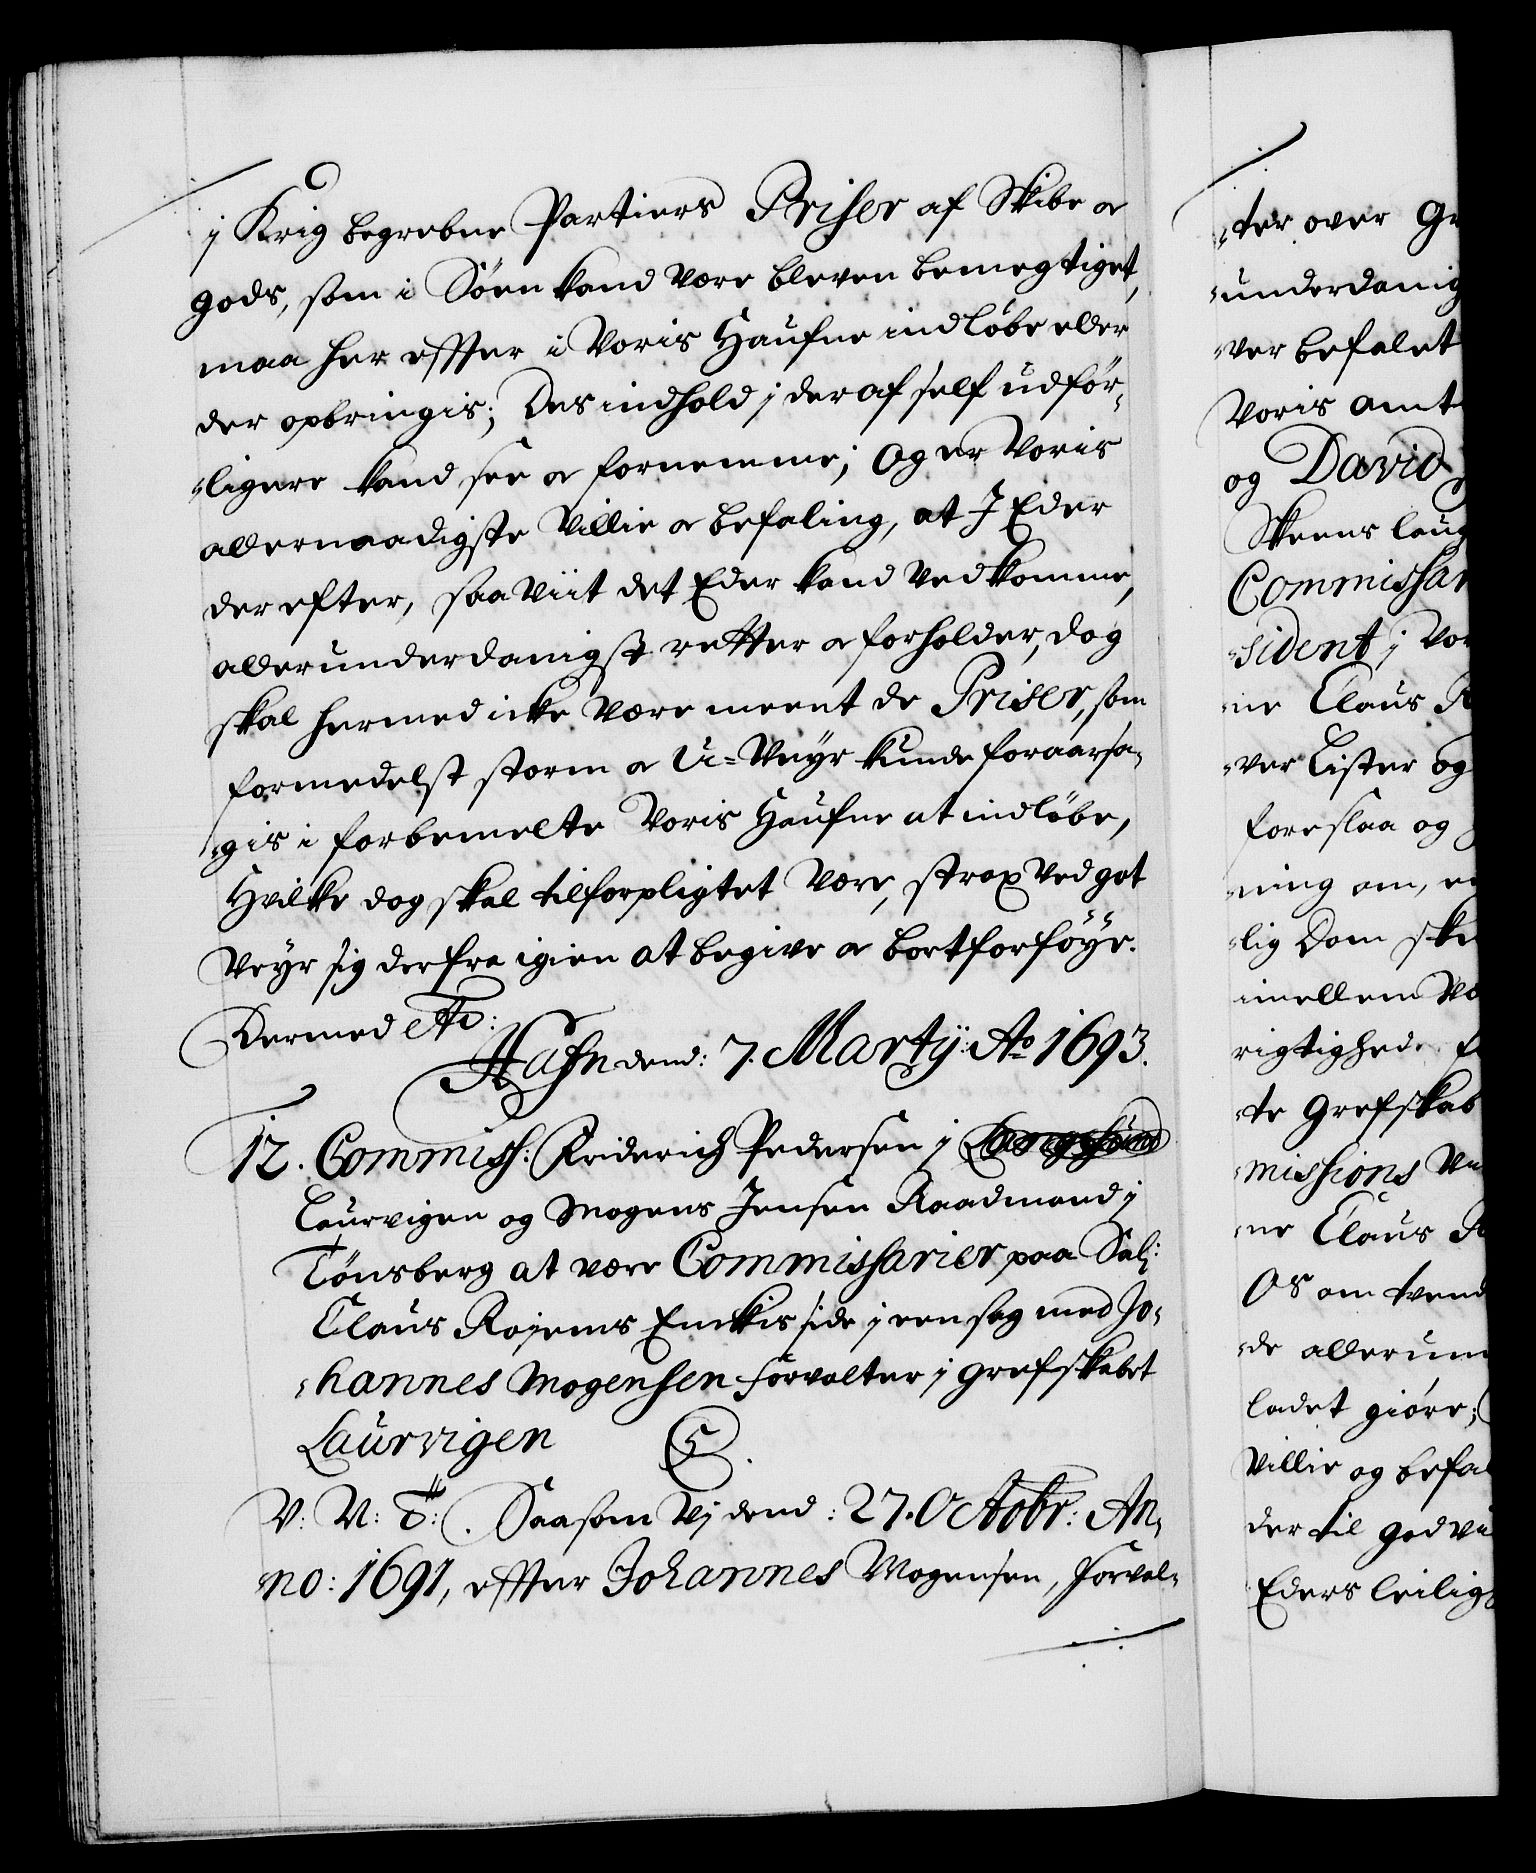 j Krig begrebne Partiers Priser af Skibe oc
gods, som i Söen kand være bleven bemegtiget,
maa her effter i Voris Haufne indløbe eller
der opbringis; Des indhold j deraf self udfør-
-ligere kand see oc fornemme; Og er Voris
allernaadigste Villie oc befaling, at J Eder
der efter, saa viit det Eder kand vedkomme,
allerunderdanigst retter oc forholder, dog
skal hermed icke være meent de Priser, som
formedelst storm oc U-Veyr kunde foraarsa-
-gis i forbemelte Voris Haufne at indløbe,
Hvilke dog skal tilforpligtet være, strax ved got
Veyr sig derfra igien at begive oc bortforföye.
Dermed etc:
Hafn dend: 7. Martij Ao 1693.
12. Commiss: Friderich Pedersen j Langesund
Laurvigen og Mogens Jensen Raadmand j
Tönsberg at være Commissarier paa Sal:
Claus Røyems Enckis side j een sag med Jo-
-hannes Mogensen forvalter j grefskabet
Laurvigen C5.
V: V: T: Saasom Vj dend: 27. Octobr: An-
-no: 1691, effter Johannes Mogensen, forval-
-ter over Gr
-underdanig
-ver befalet
Voris amt
og David
Skeens laug
Commissar
-sident j Vor
-ne Claus R
-ver Lister og
foreslaa og
-ning om, en
-lig Dom ske
imellem Vo
rigtighed
-te Grefskab
-missions
-ne Claus R
Os om
-de allerun
ladet giöre;
Villie og befal
der til god
Eders leilig